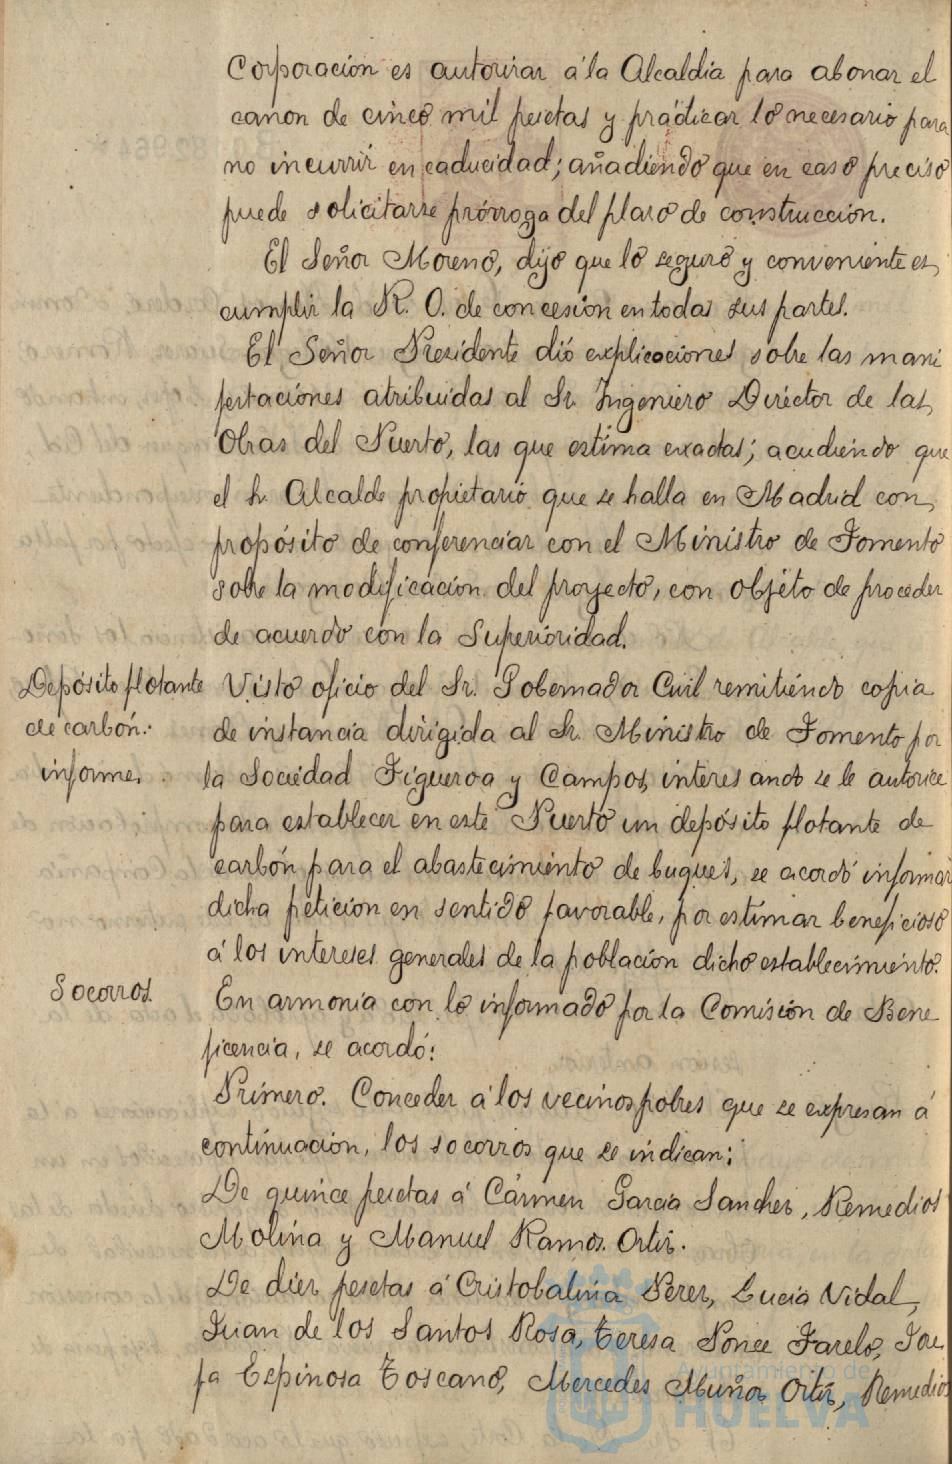 Corporación es autorizar á la Alcaldía para abonar el
canon de cinco mil pesetas y prácticar lo necesario para
no incurrir en caducidad; añadiendo que en caso preciso
puede solicitarse prórroga del plazo de construcción.
El Señor Moreno, dijo que lo seguro y conveniente es
cumplir la R. O. de concesión en todas sus partes.
El Señor Presidente dió explicaciones sobre las mani
festaciones atribuidas al Sr. Ingeniero Director de las
Obras del Puerto, las que estima exactas; acudiendo que
el Sr. Alcalde propietario que se halla en Madrid con
propósito de conferenciar con el Ministro de Fomento
sobre la modificación del proyecto, con objeto de proceder
de acuerdo con la Superioridad.
Depósito flotante
de carbón.
informe.
Visto oficio del Sr. Gobernador Civil remitiendo copia
de instancia dirigida al Sr. Ministro de Fomento por
la Sociedad Figueroa y Campos, interesando se le autorice
para establecer en este Puerto un depósito flotante de
carbón para el abastecimiento de buques, se acordó informar
dicha petición en sentido favorable, por estimar beneficioso
á los intereses generales de la población dicho establecimiento.
Socorros.
En armonia con lo informado por la Comisión de Bene
ficencia, se acordó:
Primero. Conceder á los vecinos pobres que se expresan á
continuación, los socorros que se indican;
De quince pesetas á Cármen Garcia Sanchez, Remedios
Molina y Manuel Ramos Ortiz.
De diez pesetas á Cristobalina Perez, Lucia Vidal,
Juan de los Santos Rosa, Teresa Ponce Farelo, Jose
fa Espinosa Toscano, Mercedes Muñoz Ortiz, Remedios
Ayuntamiento de
HUELVA